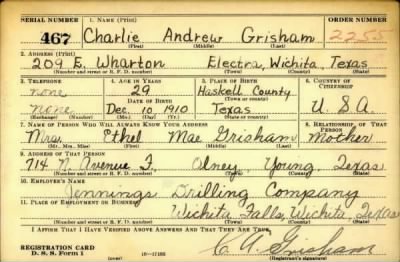 SERIAL NUMBER 1. NAME (Print) ORDER NUMBER
467 Charlie Andrew Grisham 2255
(First) (Middle) (Last)
2. ADDRESS (Print)
209 E. Wharton Electra, Wichita, Texas
(Number and street or R. F. D. number) (Town) (County) (State)
3. TELEPHONE 4. AGE IN YEARS 5. PLACE OF BIRTH 6. COUNTRY OF CITIZENSHIP
none 29 Haskell County
DATE OF BIRTH (Town or county)
none Dec 10 1910 Texas U S A
(Mo.) (Day) (Yr.) (State or country)
7. NAME OF PERSON WHO WILL ALWAYS KNOW YOUR ADDRESS 8. RELATIONSHIP OF THAT PERSON
Mrs Ethel Mae Grisham Mother
(Mr., Mrs., Miss) (First) (Middle) (Last)
9. ADDRESS OF THAT PERSON
714 N. Avenue F. Olney Young Texas
(Number and street or R. F. D. number) (Town) (County) (State)
10. EMPLOYER'S NAME
Jennings Drilling Company
11. PLACE OF EMPLOYMENT OR BUSINESS
Wichita Falls, Wichita, Texas
(Number and street or R. F. D. number) (Town) (County) (State)
I AFFIRM THAT I HAVE VERIFIED ABOVE ANSWERS AND THAT THEY ARE TRUE.
REGISTRATION CARD
D. S. S. Form 1 C A Grisham
(Registrant's signature)